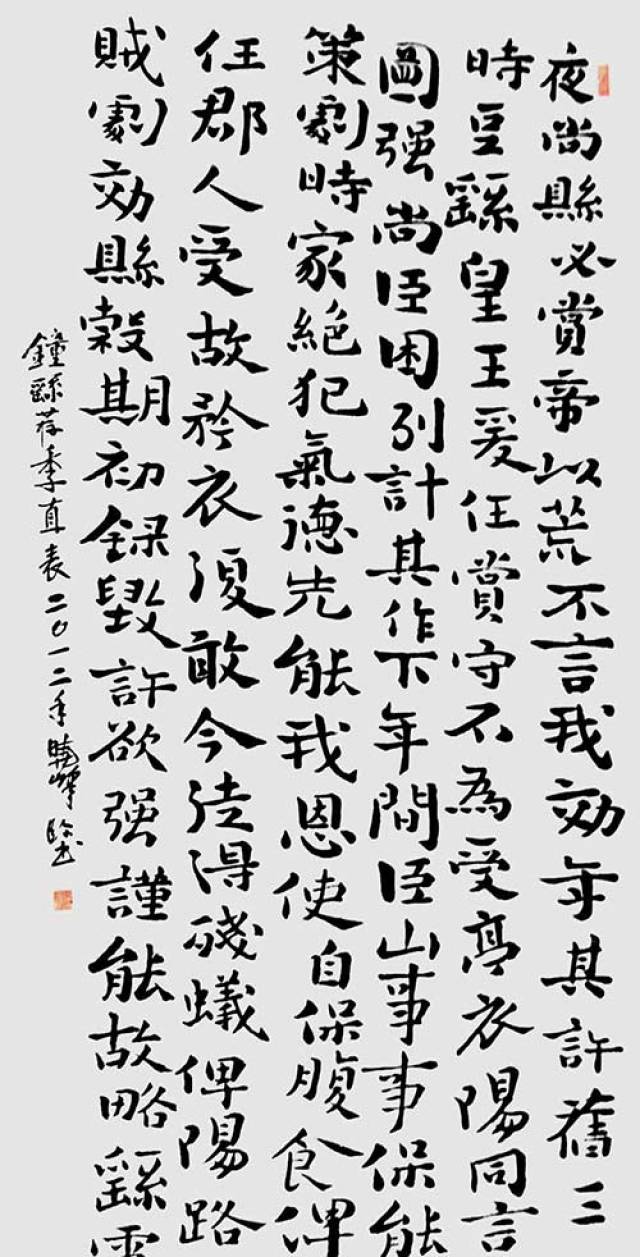 夜尚縣必賞帝以荒不言我効年其許舊三
時豆繇皇王爰任賞守不為受亭衣陽同言
圖强尚臣困列計其作下年間臣山事事保能
策劇時家絕犯氣德先能我恩使自保腹食俾
任郡人受故矜衣復敢今待得殘蟻俾陽路
賊劇効縣穀期初録毀許欲强謹能故略繇
鍾繇荐季直表二〇一二年曉峰臨